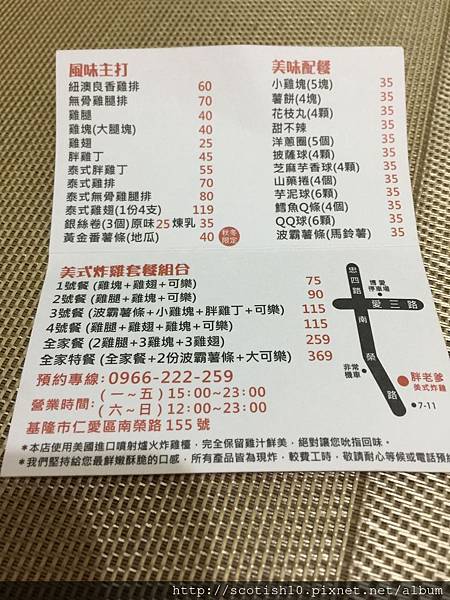 風味主打
紐澳良香雞排 60
無骨雞腿排 70
雞腿 40
雞塊(大腿塊) 40
雞翅 25
胖雞丁 45
泰式胖雞丁 55
泰式雞排 70
泰式無骨雞腿排 80
泰式雞翅(1份4支) 119
銀絲卷(3個)原味25 煉乳 35
黃金番薯條(地瓜) 40 秋冬限定
美味配餐
小雞塊(5塊) 35
薯餅(4塊) 35
花枝丸(4顆) 35
甜不辣 35
洋蔥圈(5個) 35
披薩球(4顆) 35
芝麻芋香球(4顆) 35
山藥捲(4個) 35
芋泥球(6顆) 35
鱈魚Q條(4個) 35
QQ球(6顆) 35
波霸薯條(馬鈴薯) 35
美式炸雞套餐組合
1號餐 (雞塊+雞翅+可樂) 75
2號餐 (雞腿+雞塊+可樂) 90
3號餐 (波霸薯條+小雞塊+胖雞丁+可樂) 115
4號餐 (雞腿+雞翅+雞塊+可樂) 115
全家餐 (2雞腿+3雞塊+3雞翅) 259
全家特餐 (全家餐+2份波霸薯條+大可樂) 369
預約專線: 0966-222-259
營業時間: (一~五) 15:00~23:00
(六~日) 12:00~23:00
基隆市仁愛區南榮路 155 號
忠四路
博愛停車場
愛三路
南榮路
非常機車
胖老爹
美式炸雞
7-11
*本店使用美國進口噴射爐火炸雞檯,完全保留雞汁鮮美,絕對讓您吮指回味。
*我們堅持給您最鮮嫩酥脆的口感,所有產品皆為現炸,較費工時,敬請耐心等候或電話預
http://scotish10.pixnet.net/album